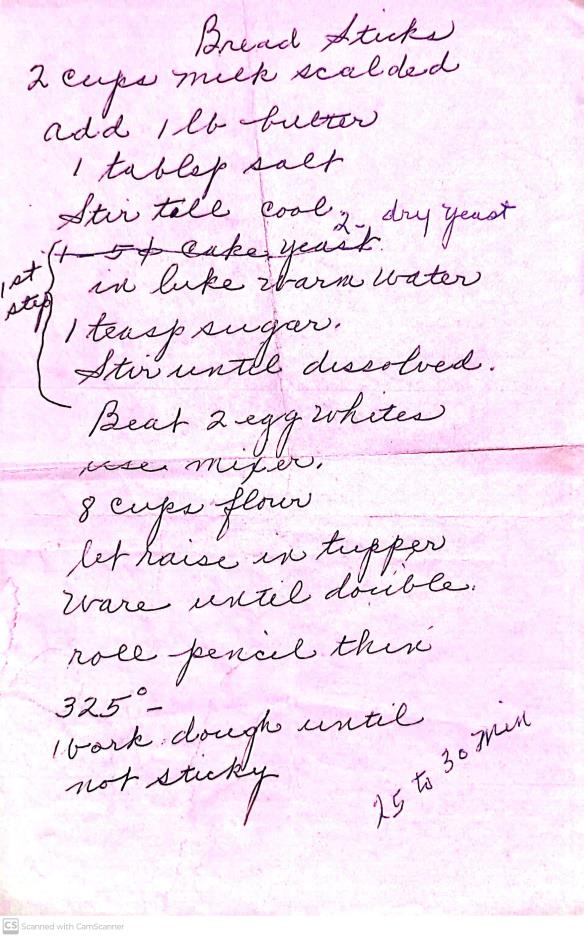 Bread Sticks
2 cups milk scalded
add 1 lb butter
1 tablsp salt
Stir till cool.
2- dry yeast
1 - 5¢ cake yeast
in luke warm water
1st step
1 teasp sugar.
Stir until dissolved.
Beat 2 egg whites
use mixer.
8 cups flour
let raise in tupper
ware until double.
roll pencil thin
325° -
work dough until
not sticky
25 to 30 min
CS Scanned with CamScanner